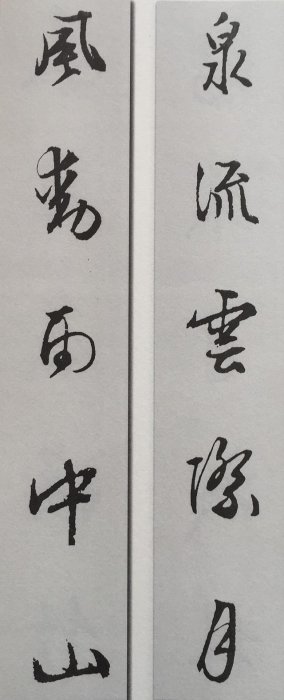 泉流雲際月
風動雨中山